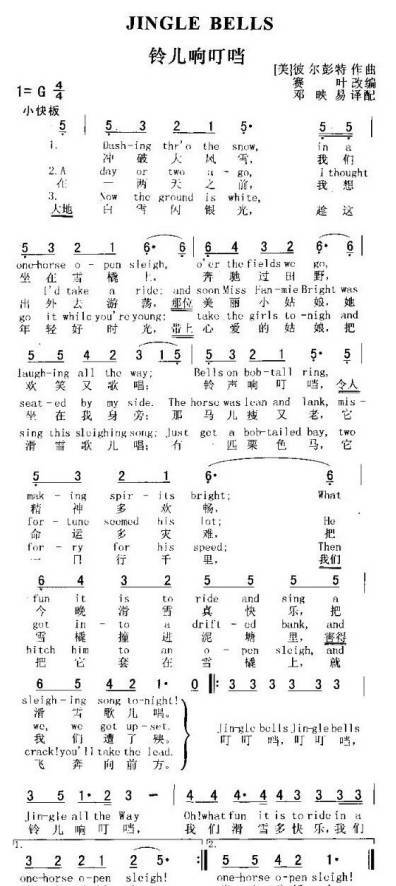 JINGLE BELLS
铃儿响叮当
[美]彼尔彭特作曲
赛 叶改编
邓 映 易译配
1=G 4/4
小快板
5 5. 3 2 1 5· 5 5
1. Dash-ing thr'o the snow, in a
冲 破 大 风 雪, 我们
2. A day or two a-go, I thought
在 一 两 天 之 前, 我 想
3. Now the ground is white,
大地 白 雪 闪 银 光, 趁 这
5 3 2 1 6· 6 6 4 3 2 6· 6
one-horse o-pen sleigh, o'er the fields we go,
坐 在 雪 橇 上, 奔 驰 过 田 野,
I'd take a ride; and soon Miss Fan-nie Bright was
出 外 去 游 荡, 那位 美 丽 小 姑 娘, 她
go it while you're young; take the girls to-nigh and
年 轻 好 时 光, 带上 心 爱 的 姑 娘, 把
5 5 4 2 3 (1 5) 5 3 2 1 5· 5 5
laughing all the way; Bells on bob-tall ring,
欢 笑 又 歌 唱; 铃 声 响 叮 当, 令人
seat-ed by my side. The horse was lean and lank, mis-
坐 在 我 身 旁; 那 马 儿 瘦 又 老, 它
sing this sleighing song; Just get a bob-tailed bay, two
滑 雪 歌 儿 唱; 有 一 匹 栗 色 马, 它
5 3 2 1 6· 6
mak-ing spir-its bright; What
精 神 多 欢 畅,
for-tune seemed his lot; He
命 运 多 灾 难, 把
for-ry for his speed; Then
一 日 行 千 里, 我们
6 4 3 2 5 5 5 5
fun it is to ride and sing a
今 晚 滑 雪 真 快 乐, 把
got in-to a drift-ed bank, and
雪 橇 撞 进 泥 塘 里, 害得
hitch him to an o-pen sleigh, and
把 它 套 在 雪 橇 上, 就
6 5 4 2 1· 0 3 3 3 3 3 3
sleigh-ing song to-night!
滑 雪 歌 儿 唱。
we, we got up-set.
我 们 遭 了 殃。
crack! you'll take the lead.
飞 奔 向 前 方。
Jingle bells Jingle bells
叮 叮 当, 叮 叮 当,
3 5 1· 2 3 — 4 4 4· 4 4 3 3 3 3
Jin-gle all the Way Oh! what fun it is to ride in a
铃 儿 响 叮 当, 我 们 滑 雪 多 快 乐, 我 们
1. 2.
3 2 2 1 2 5· 5 5 4 2 1
one-horse o-pen sleigh! one-horse o-pen sleigh!